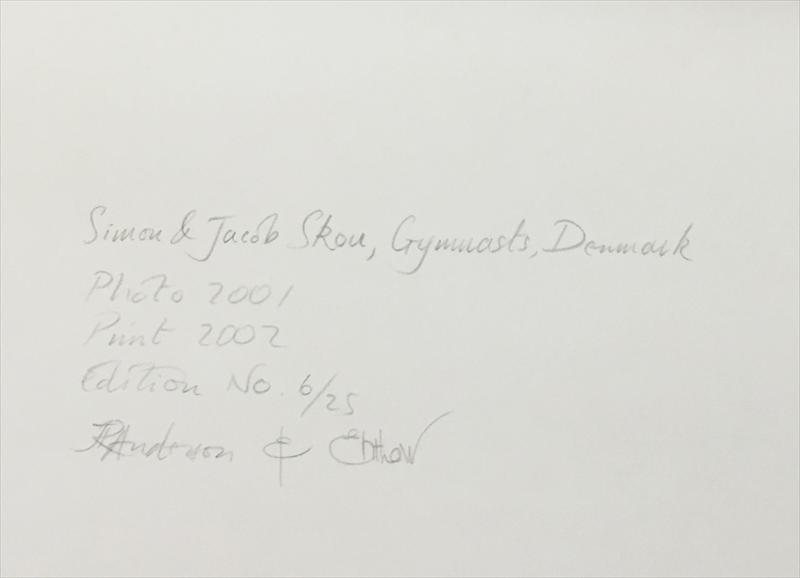 Simon & Jacob Skou, Gymnasts, Denmark
Photo 2001
Print 2002
Edition No. 6/25
Anderson &